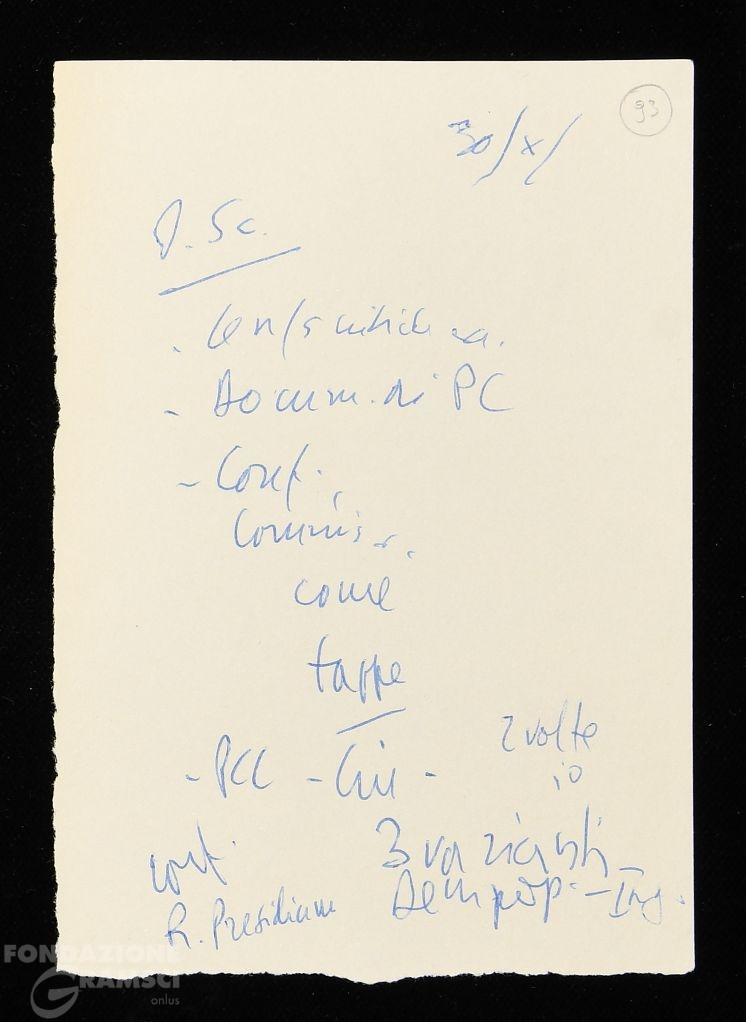 93
30/X/
D. Sc.
- Docum. di PC
- Conf.
Commiss.
come
tappe
- PCC - Cin -
2 volte
io
3 varianti
conf.
Dem pop. - Ing.
R. Presidium
FONDAZIONE
GRAMSCI
onlus